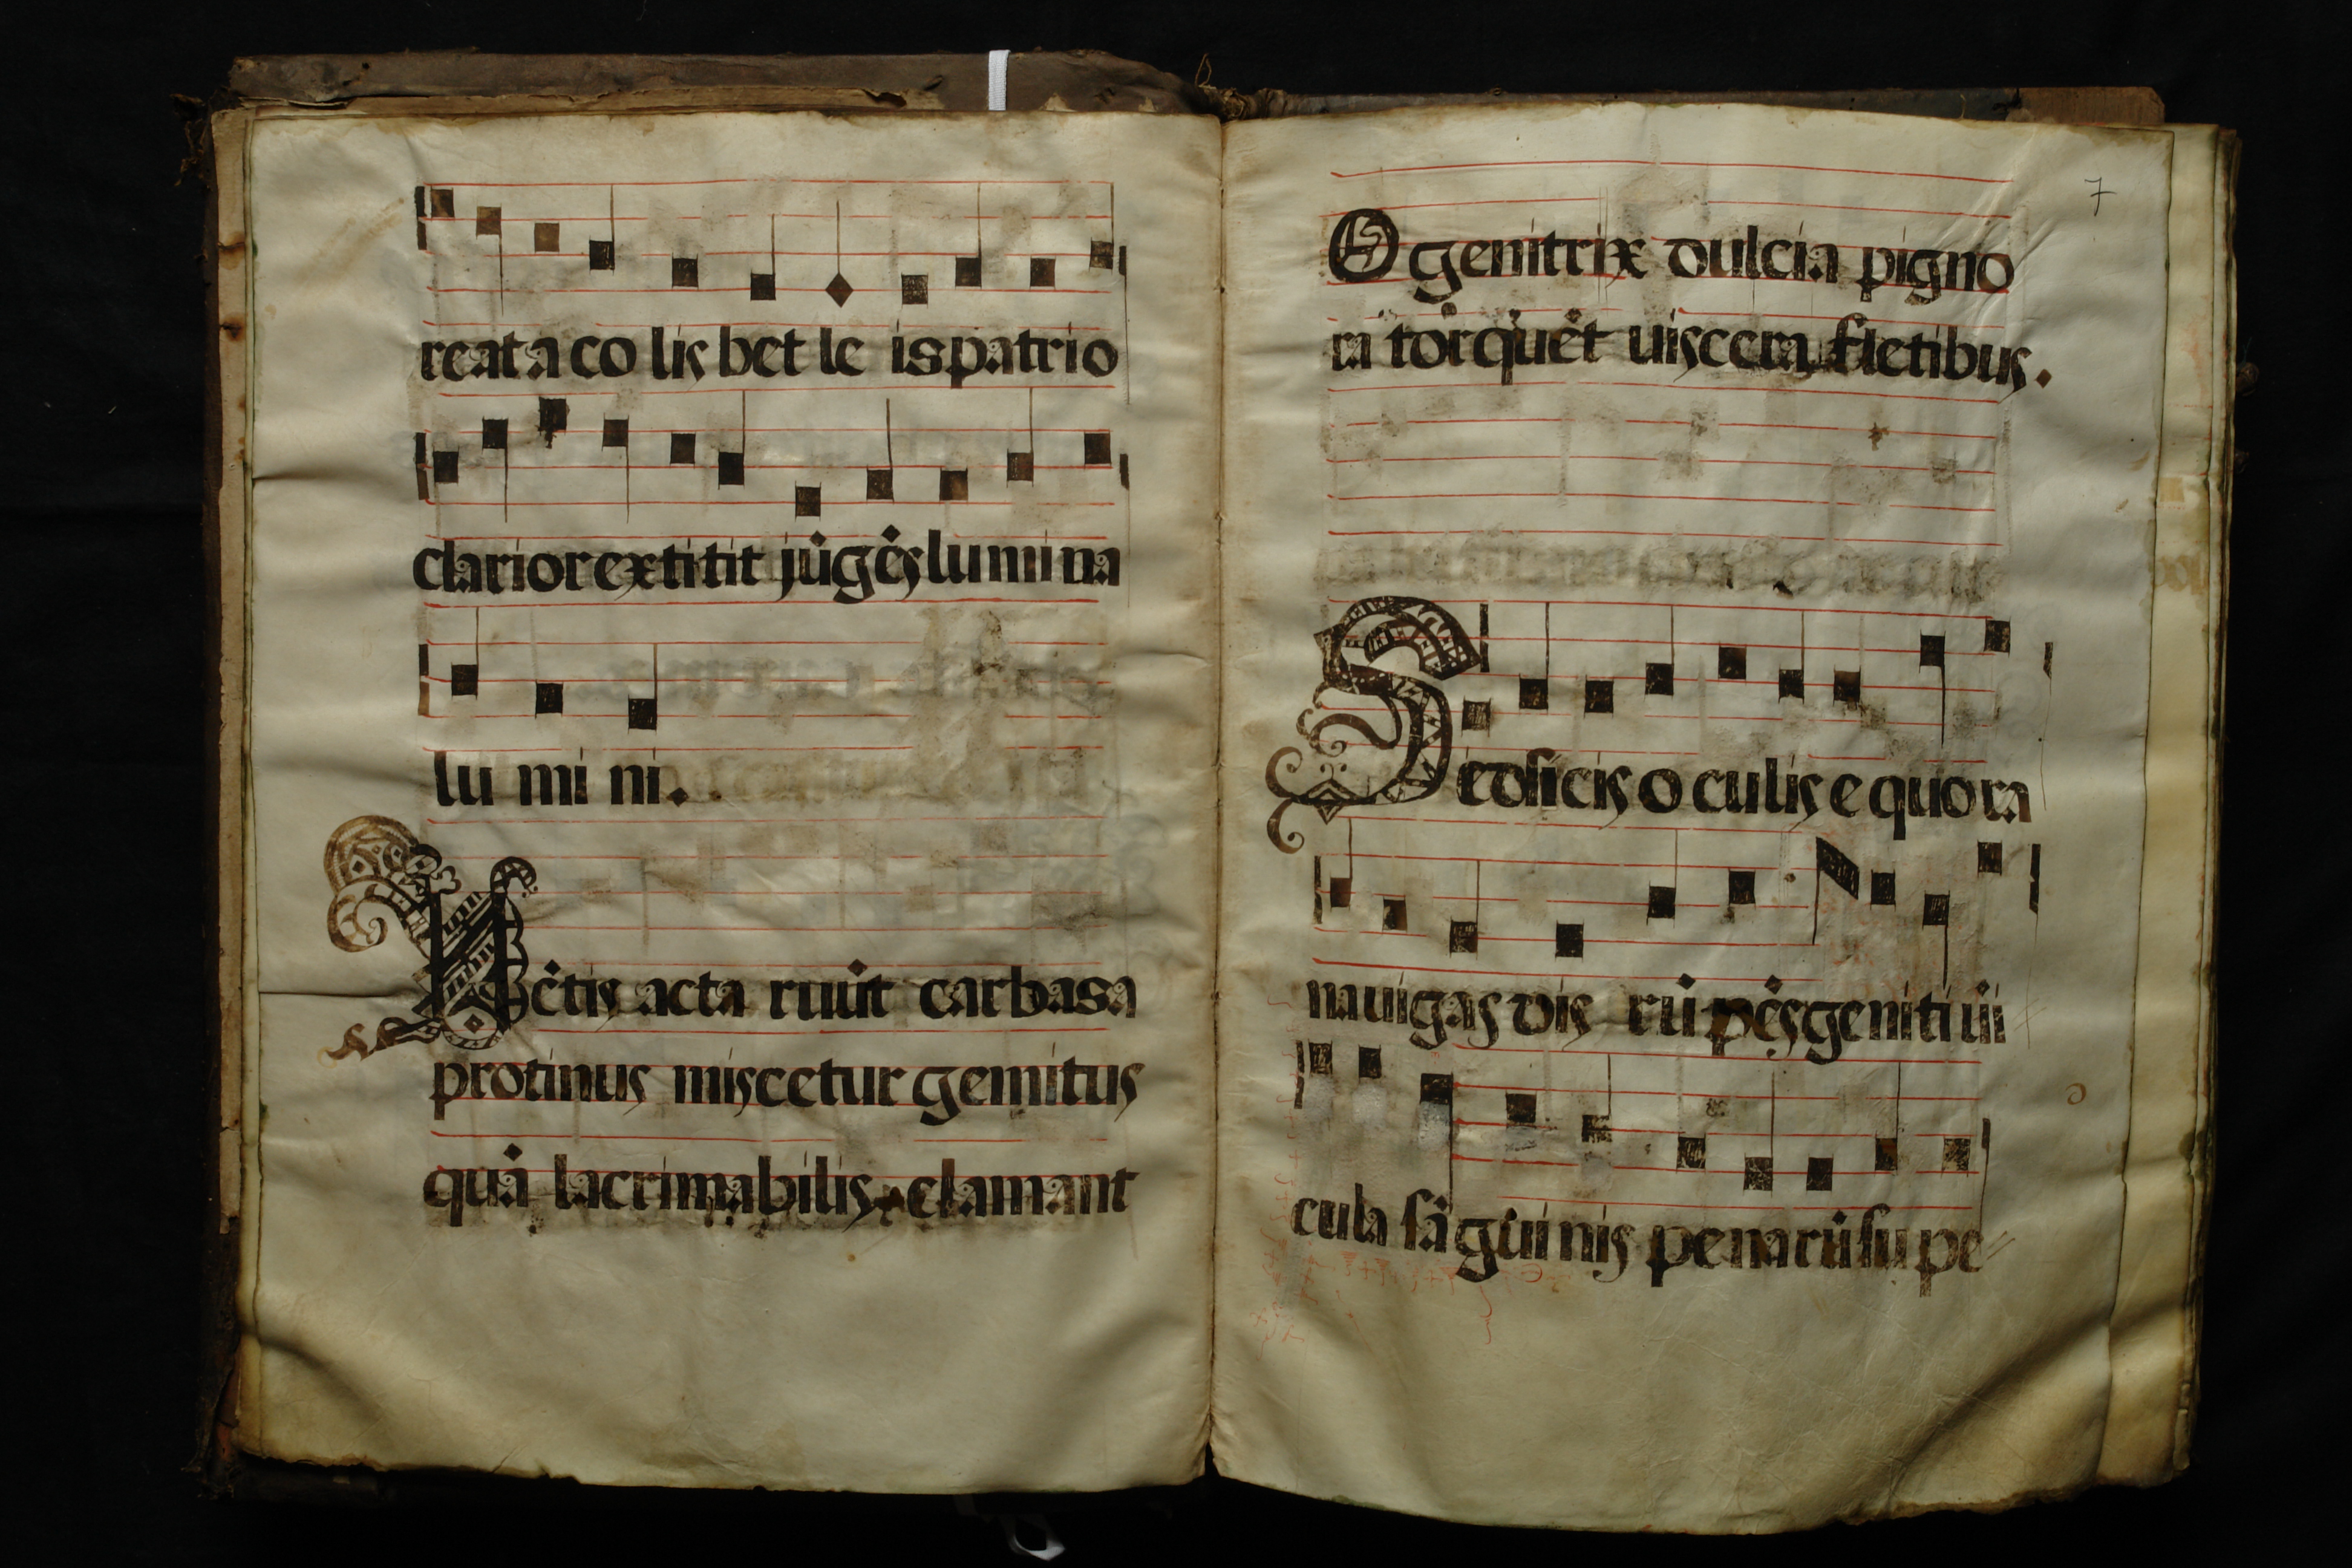 reata co lis bet le is patrio
clarior extitit jūgēs lumina
lu mi ni.
Vētis acta ruūt carbasa
protinus miscetur gemitus
quā lacrimabilis clamant
7
O genitrix dulcia pigno
ra torquēt uiscera fletibus.
Sed sicis o culis e quora
nauigas dis rū pēs geniti uī
cula sāgui nis penarū su pe